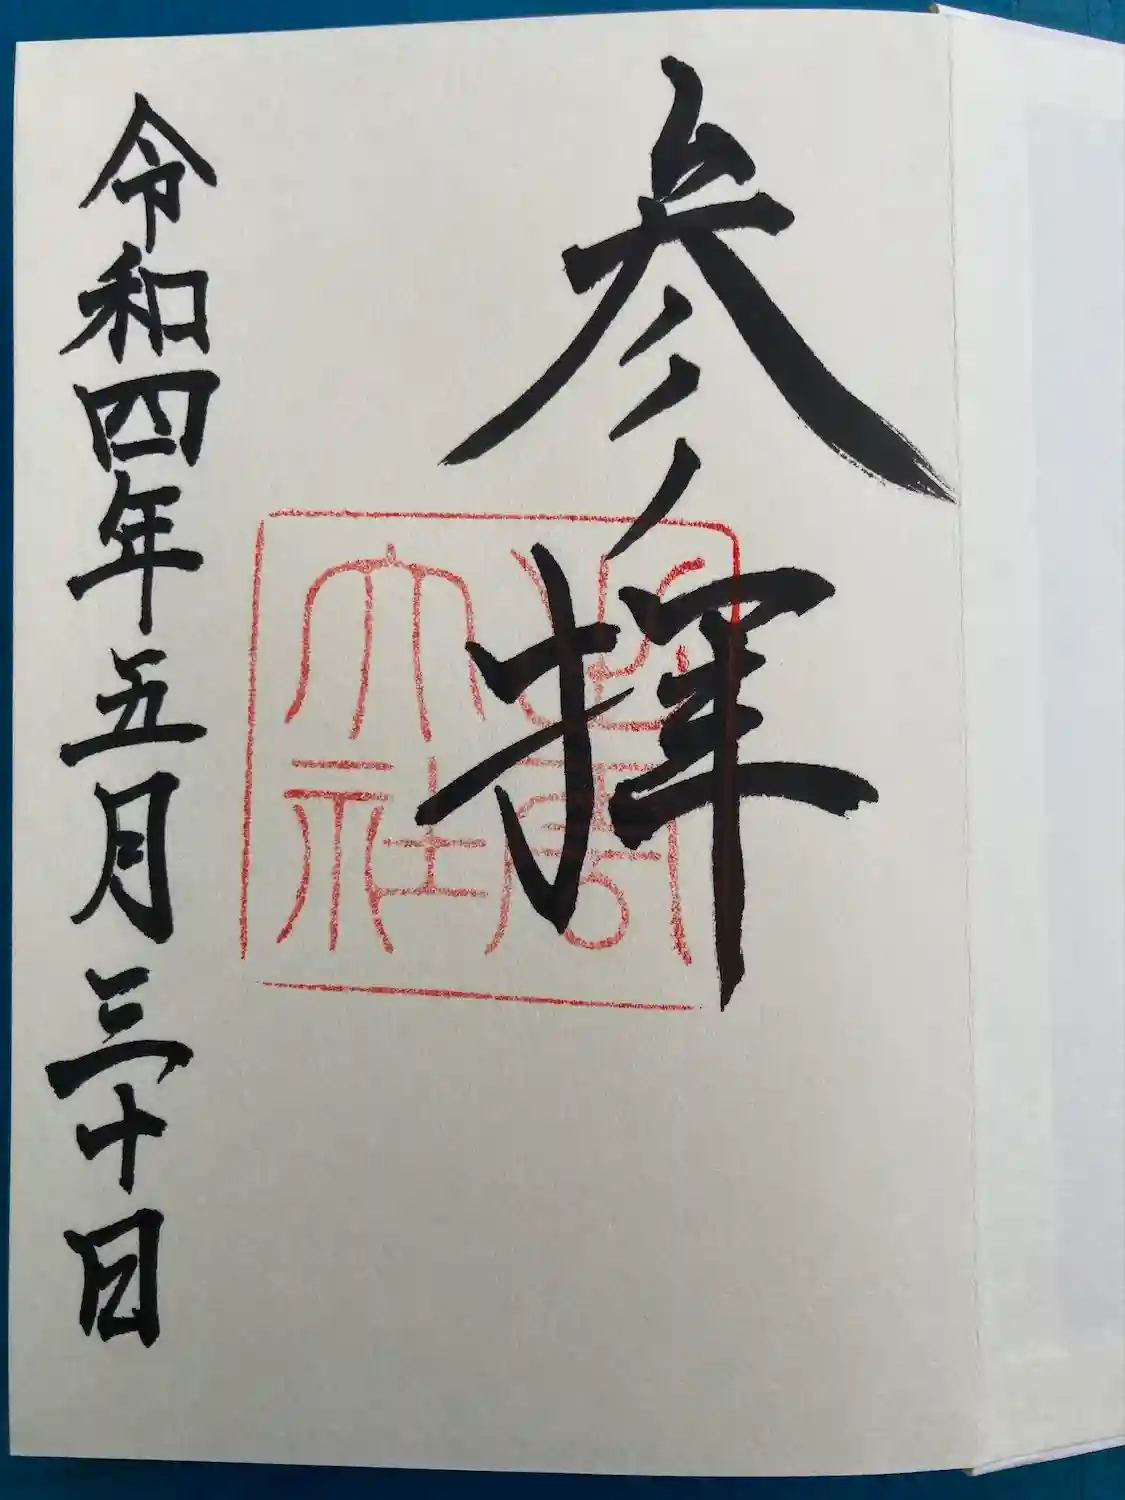 参拝
出雲大社
令和四年五月三十日